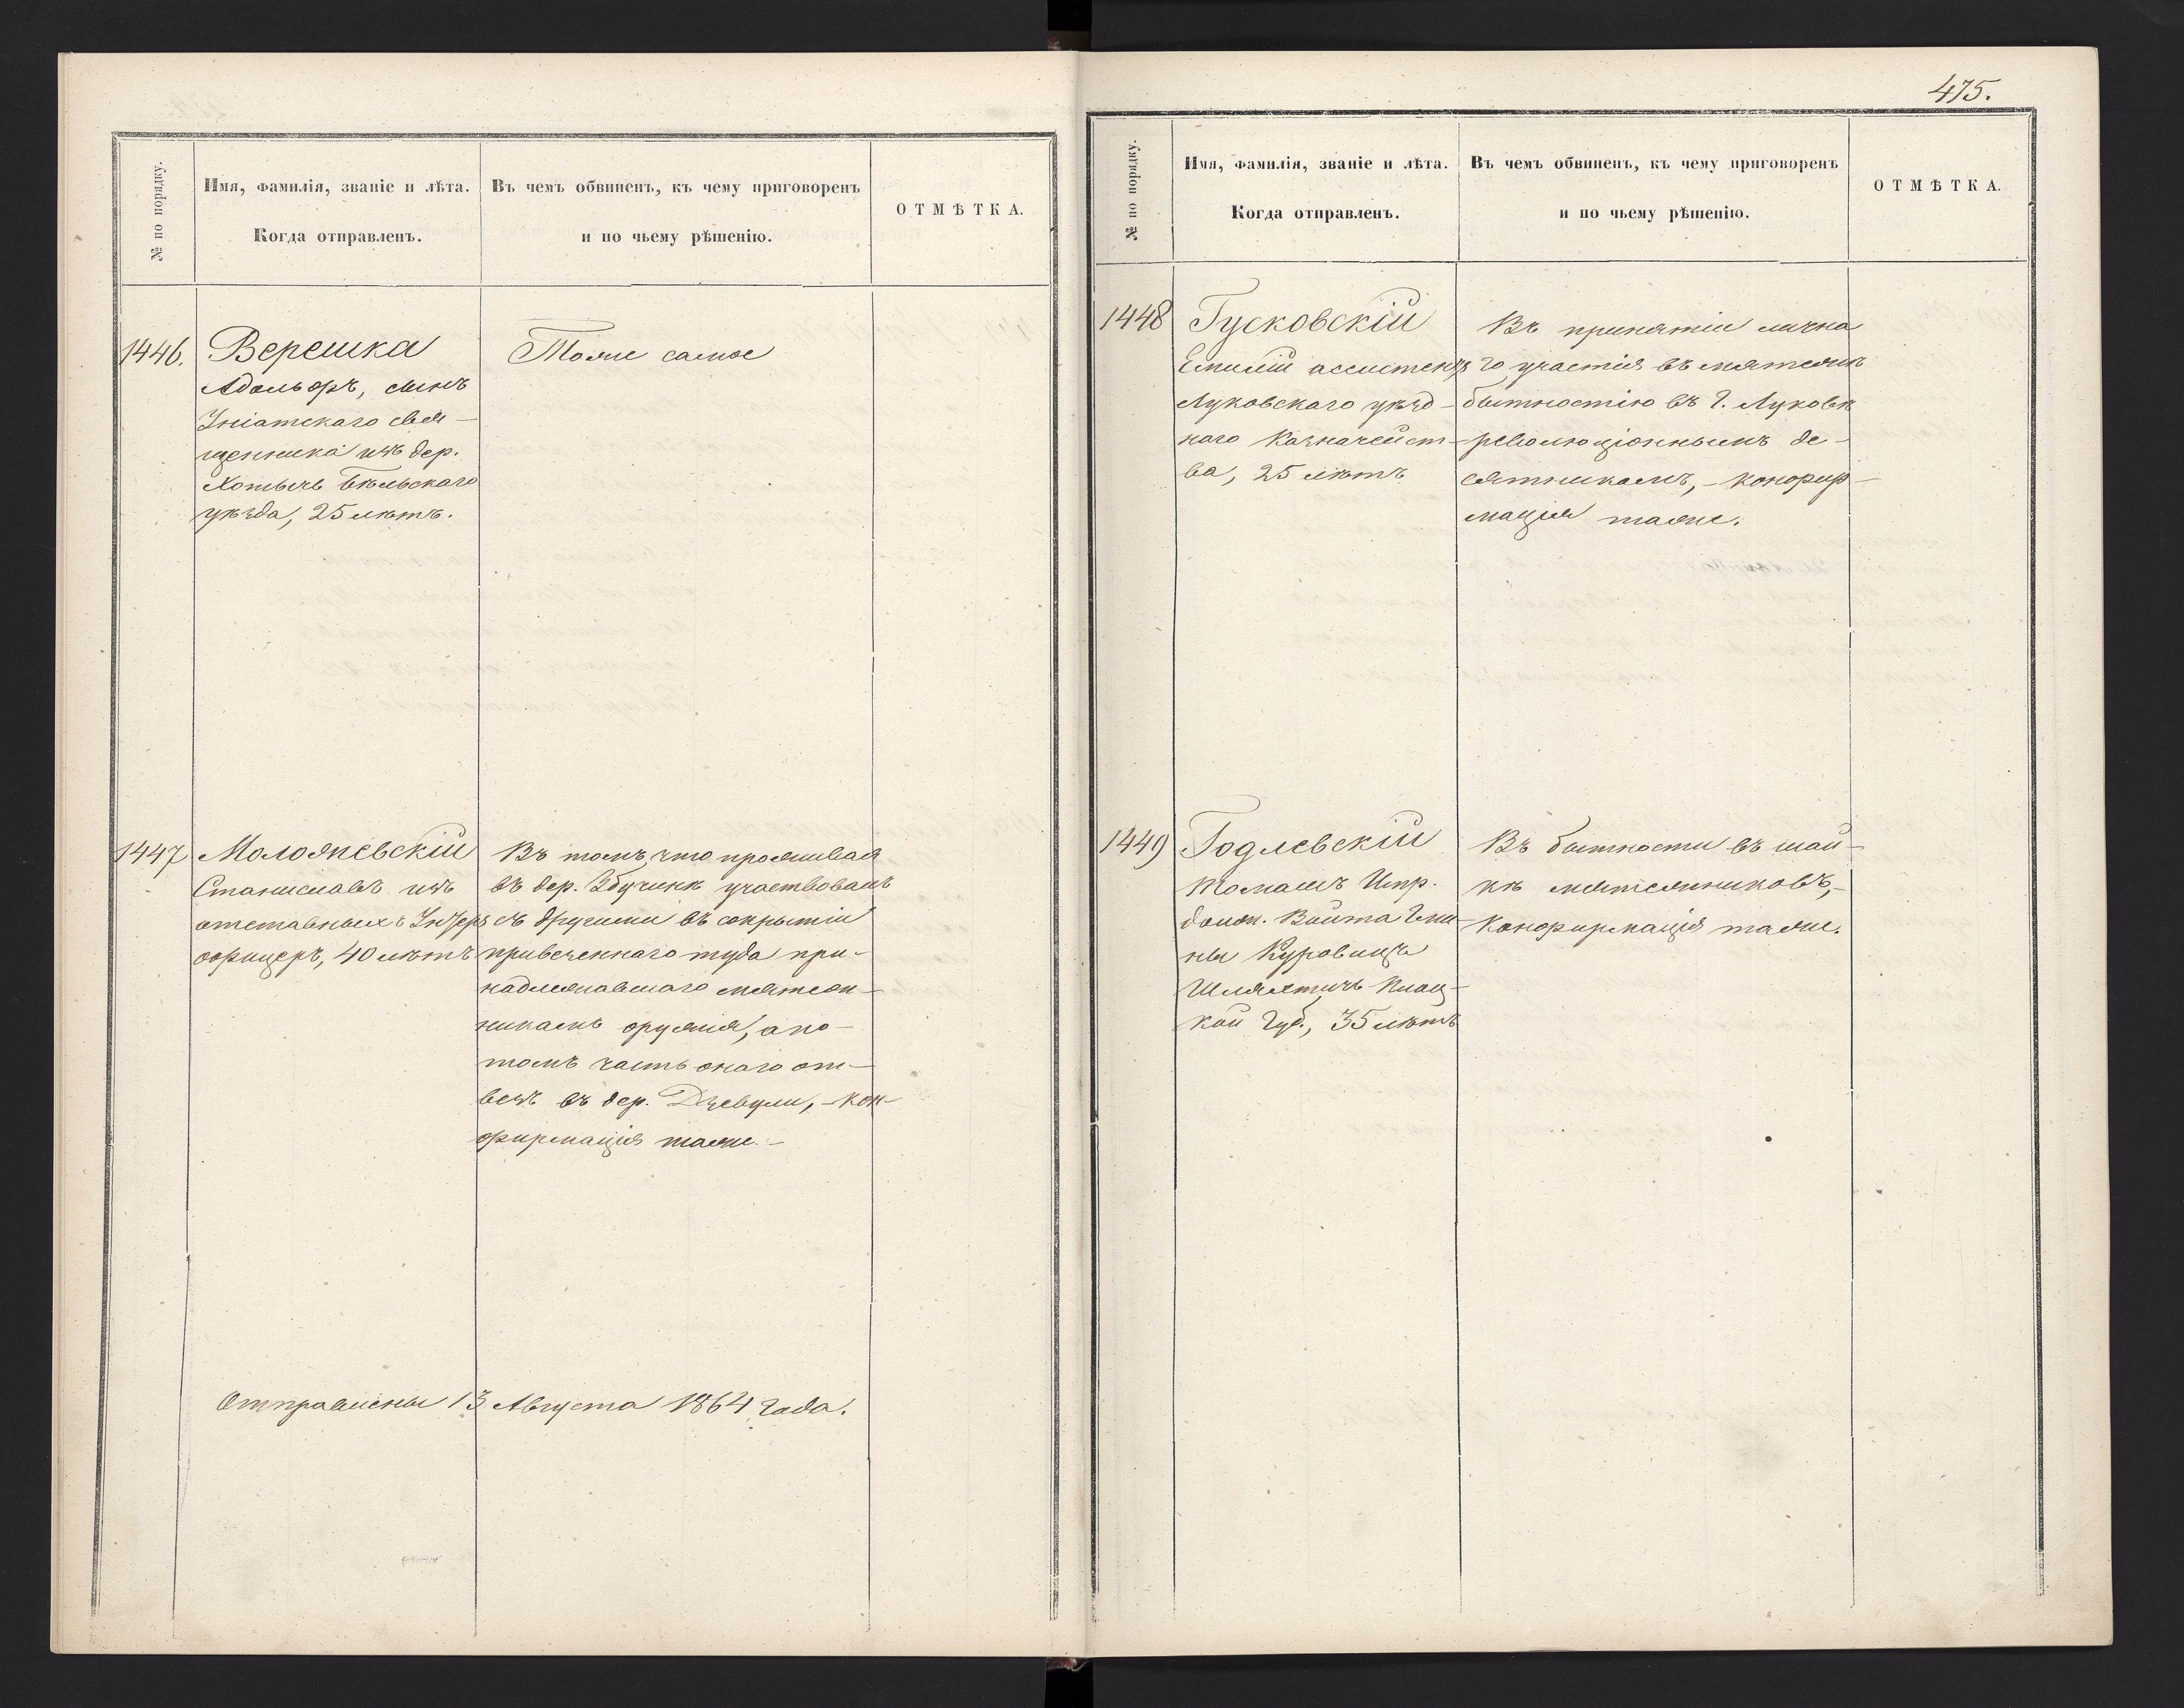 № по порядку.
Имя, фамилія, званіе и лѣта.
Когда отправленъ.
Въ чемъ обвиненъ, къ чему приговоренъ
и по чьему рѣшенію.
ОТМѢТКА.
1446.
Верешка
Адольфъ, сынъ
Уніатскаго свя-
щенника изъ дер.
Хотычъ Бѣльскаго
уѣзда, 25 лѣтъ.
Тоже самое
1447
Моложевскій
Станиславъ изъ
отставныхъ Унтеръ
офицеръ, 40 лѣтъ
Въ томъ, что проживая
въ дер. Збучинѣ участвовалъ
съ другими въ сокрытіи
привезеннаго туда при-
надлежавшаго мятеж-
никамъ оружія, а по-
томъ часть онаго от-
везъ въ дер. Дзевули, - кон-
фирмація таже. -
Отправлены 13 Августа 1864 года.
475.
№ по порядку.
Имя, фамилія, званіе и лѣта.
Когда отправленъ.
Въ чемъ обвиненъ, къ чему приговоренъ
и по чьему рѣшенію.
ОТМѢТКА.
1448
Гусковскій
Емилій ассистентъ
Луковскаго уѣзд-
наго Казначейст-
ва, 25 лѣтъ
Въ принятіи лична
го участія въ мятежѣ
бытностію въ г. Луковѣ
революціоннымъ де-
сятникомъ, - конфир-
мація таже.
1449
Годлевскій
Томашъ Испр.
должн. Войта Гми-
ны Куровицѣ
Шляхтичъ Плоц-
кой Губ., 35 лѣтъ
Въ бытности въ шай-
кѣ мятежниковъ, -
Конфирмація таже.